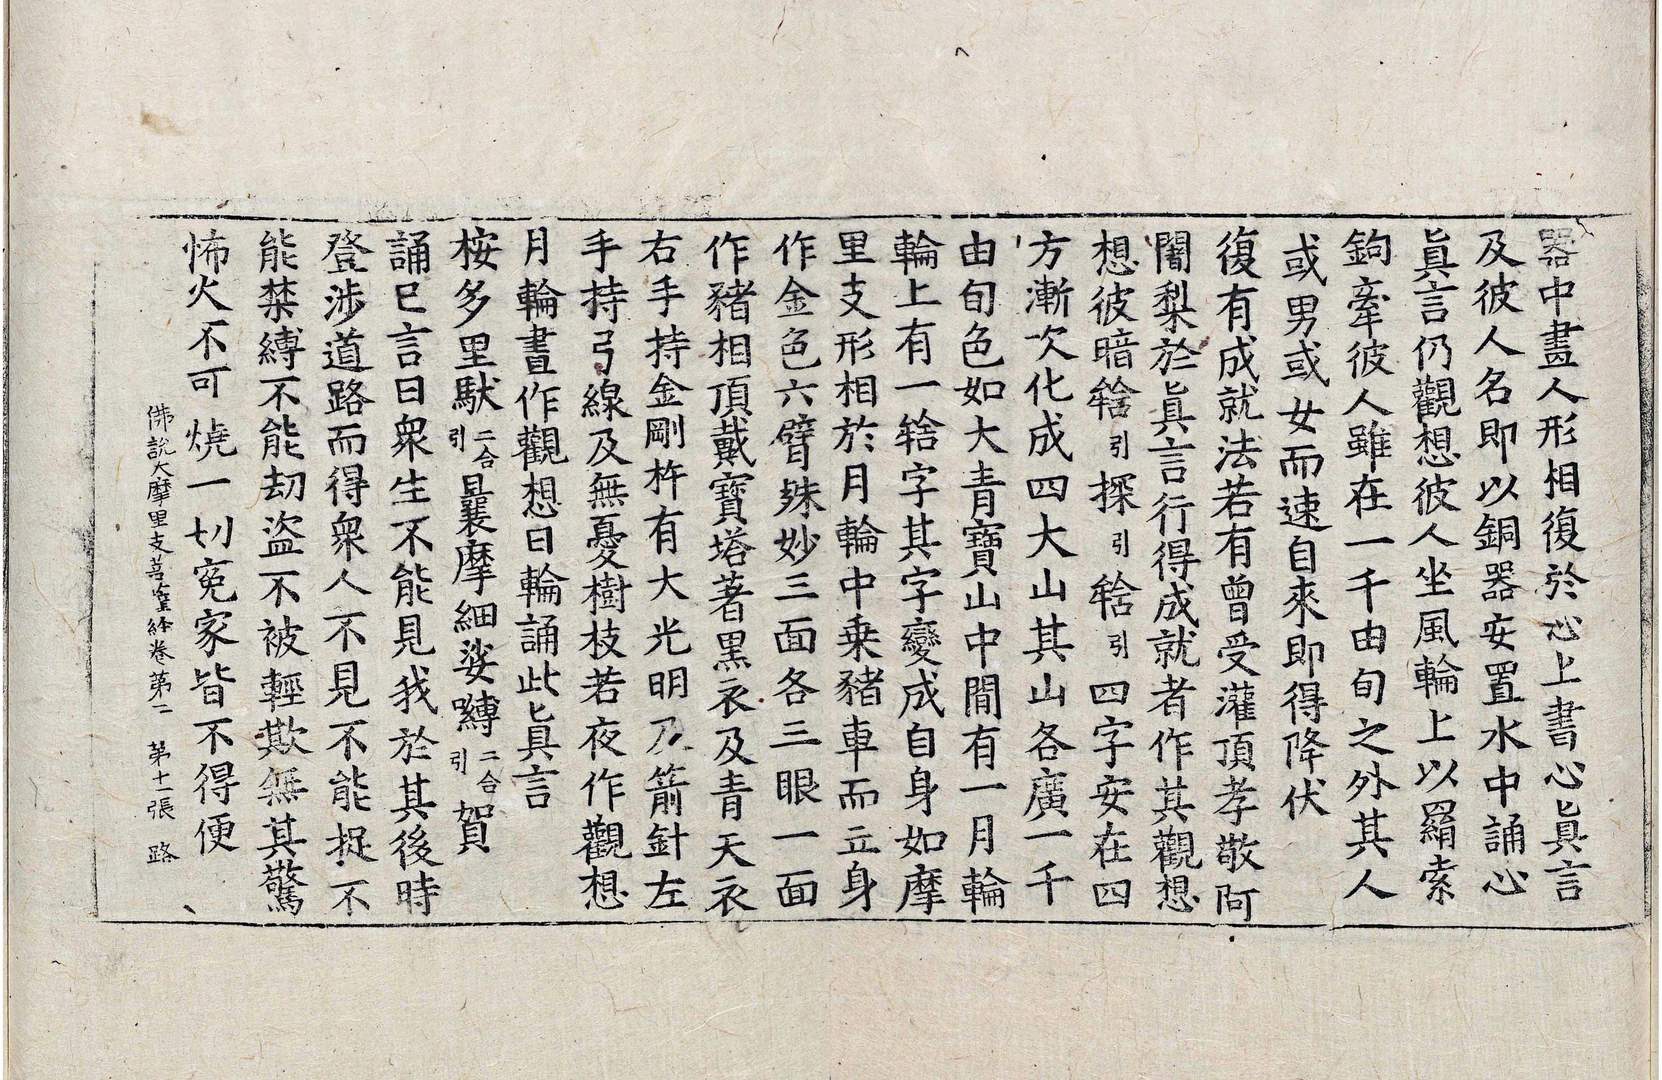 器中畫人形相復於心上書心眞言
及彼人名即以銅器安置水中誦心
眞言仍觀想彼人坐風輪上以羂索
鉤牽彼人雖在一千由旬之外其人
或男或女而速自來即得降伏
復有成就法若有曾受灌頂孝敬阿
闍梨於眞言行得成就者作其觀想
想彼暗𤚥引探引𤚥引四字安在四
方漸次化成四大山其山各廣一千
由旬色如大青寶山中間有一月輪
輪上有一𤚥字其字變成自身如摩
里支形相於月輪中乘豬車而立身
作金色六臂殊妙三面各三眼一面
作豬相頂戴寶塔著黑衣及青天衣
右手持金剛杵有大光明乃箭針左
手持弓線及無憂樹枝若夜作觀想
月輪晝作觀想日輪誦此眞言
桉多里馱二合引曩摩細娑嚩二合引賀
誦已言曰衆生不能見我於其後時
登涉道路而得衆人不見不能捉不
能禁縛不能劫盜不被輕欺無其驚
怖火不可燒一切冤家皆不得便
佛說大摩里支菩薩經卷第二 第十一張 路